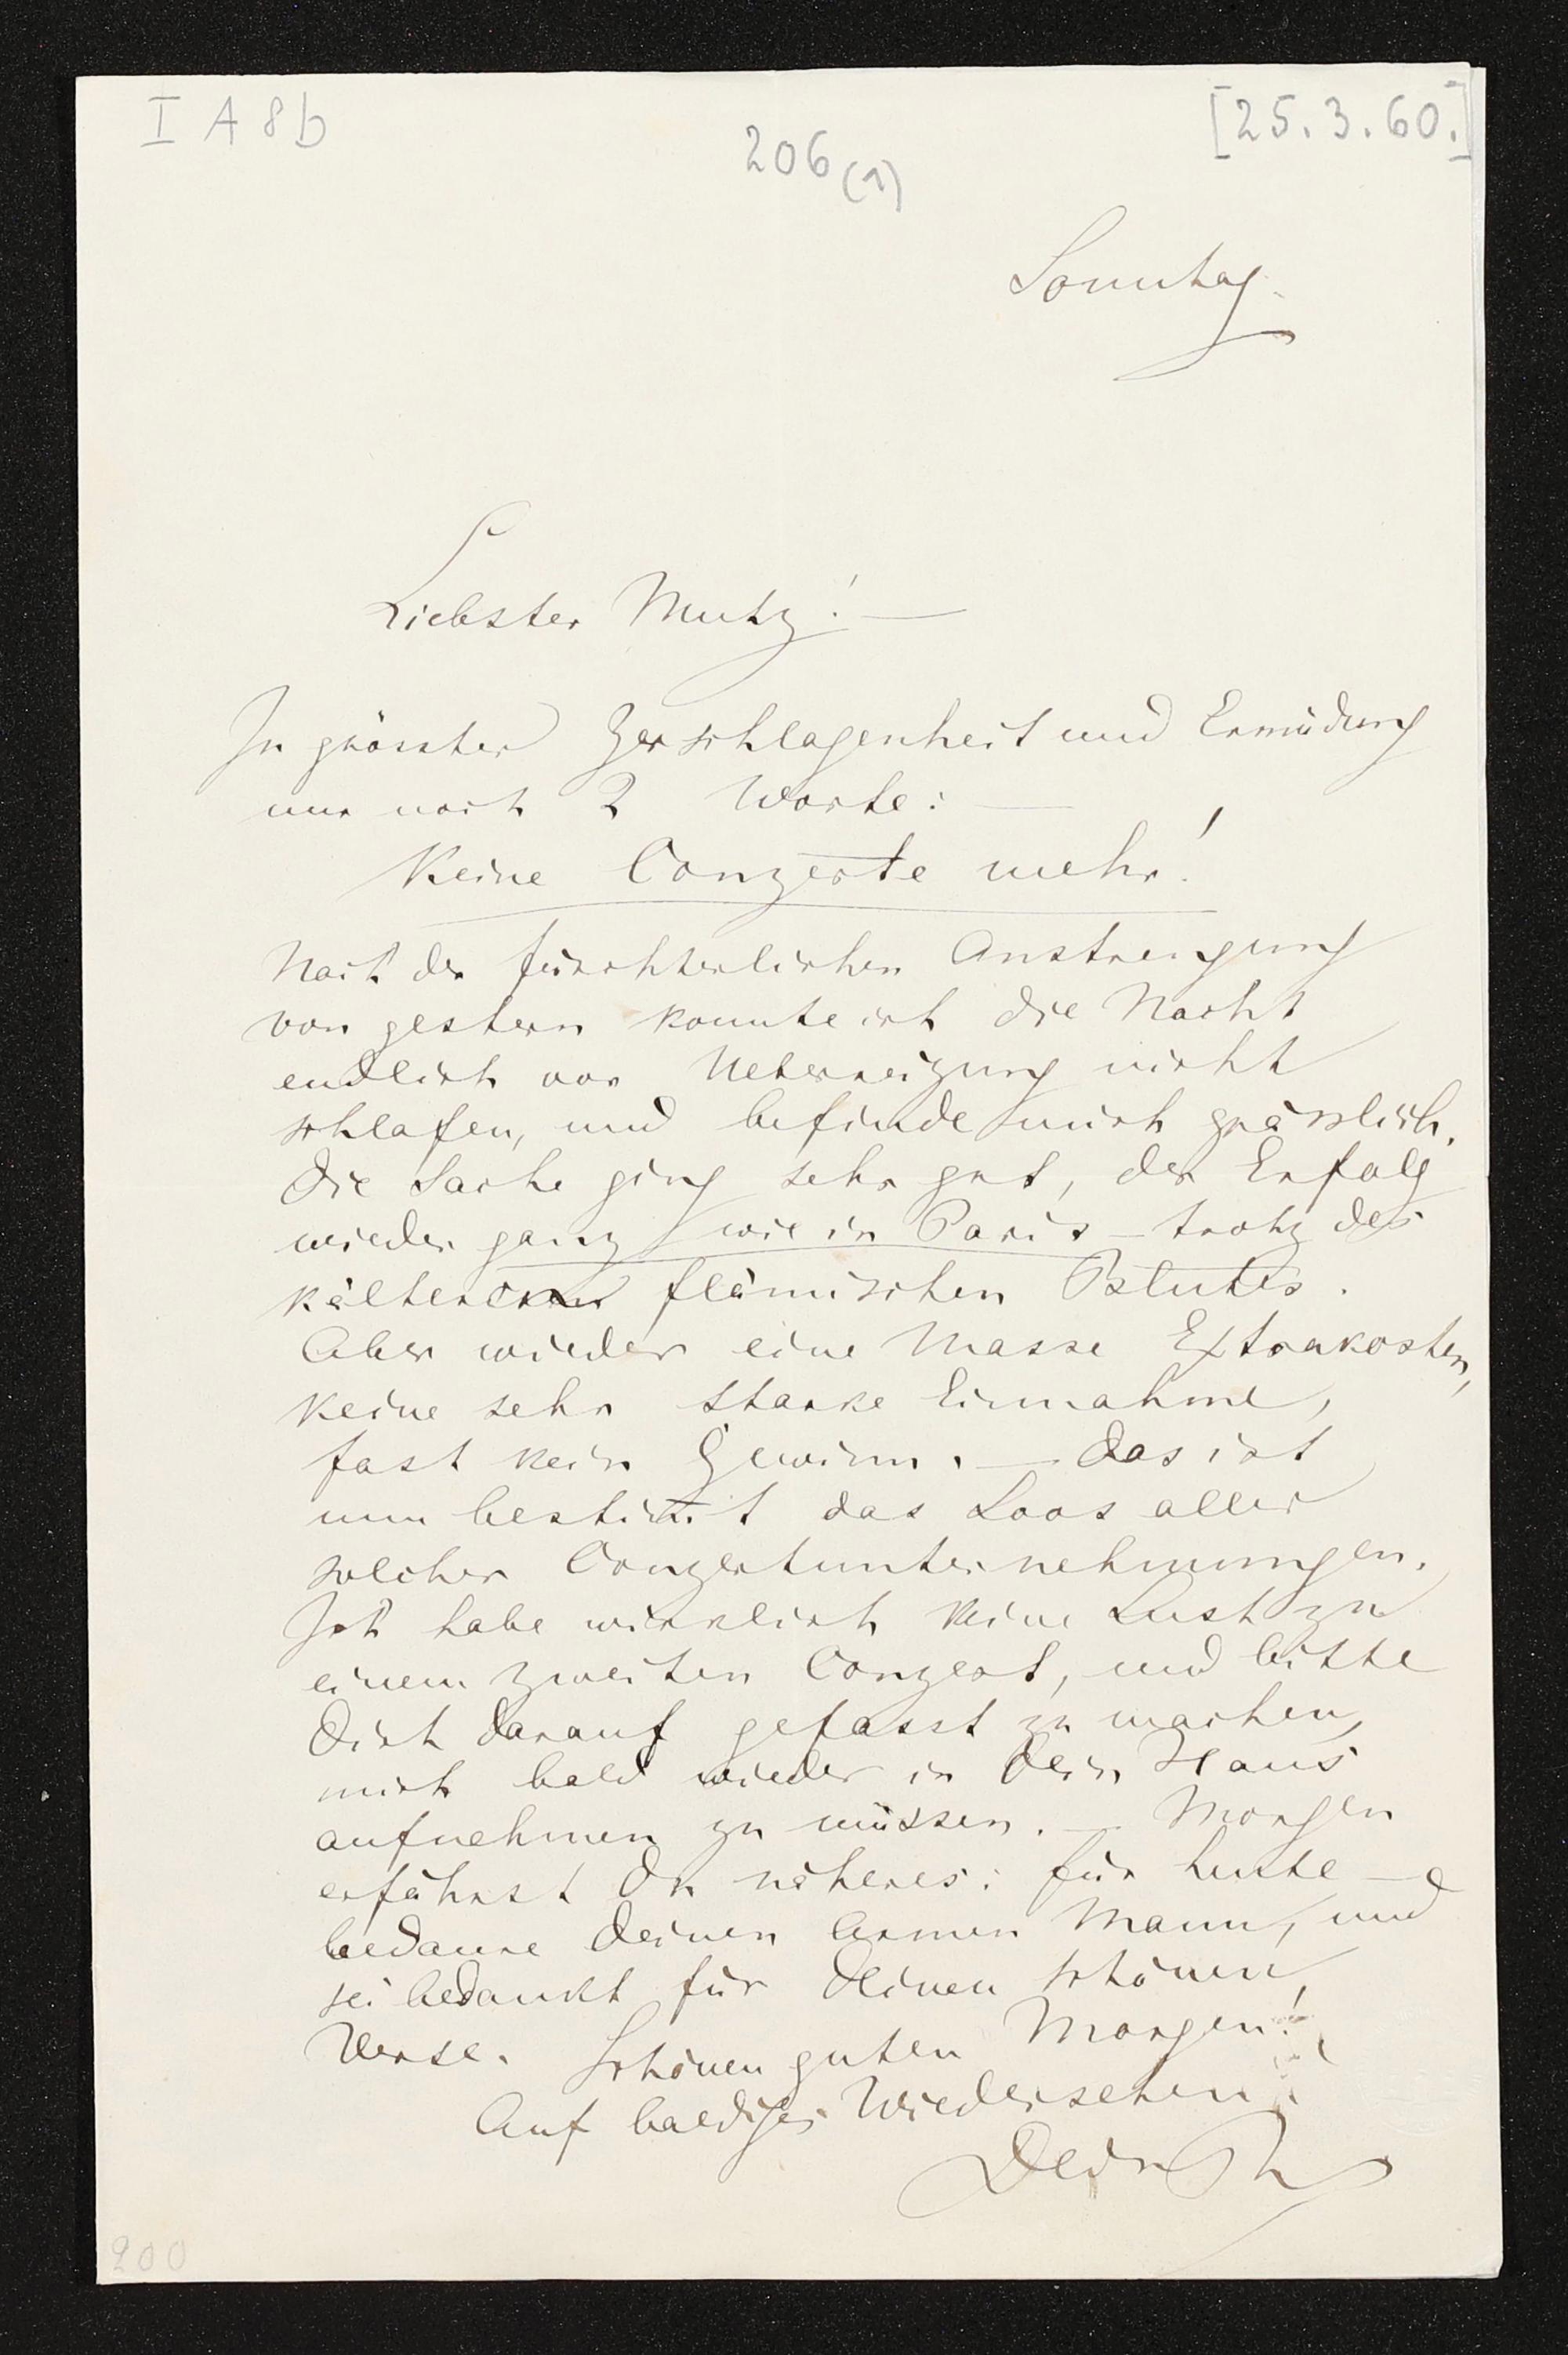 I A 8 b
206 (1)
[25.3.60.]
Sonntag.
Liebster Mutz! —
In grösster Zerschlagenheit und Ermüdung
nur noch 2 Worte: —
Keine Conzerte mehr!
Nach der fürchterlichen Anstrengung
von gestern konnte ich die Nacht
endlich vor Ueberreizung nicht
schlafen, und befinde mich grässlich.
Die Sache ging sehr gut, der Erfolg
wieder ganz wie in Paris – trotz des
kälteren flämischen Blutes.
Aber wieder eine Masse Extrakosten,
keine sehr starke Einnahme,
fast kein Gewinn. — Das ist
nun bestimt das Loos aller
solcher Conzertunternehmungen.
Ich habe wirklich keine Lust zu
einem zweiten Conzert, und bitte
Dich darauf gefasst zu machen,
mich bald wieder in Dein Haus
aufnehmen zu müssen. — Morgen
erfährst Du näheres: für heute —
bedaure Deinen armen Mann, und
sei bedankt für Deinen schönen
Verse. Schönen guten Morgen!
Auf baldiges Wiedersehen!
Dein R
200